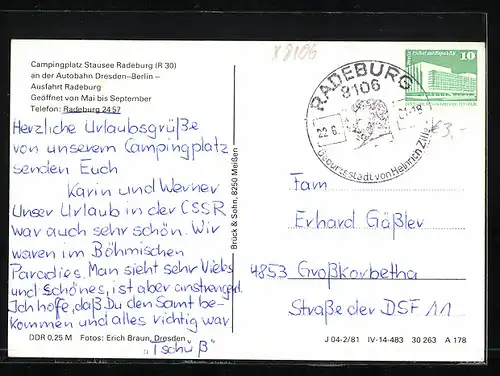 Campingplatz Stausee Radeburg (R 30)
an der Autobahn Dresden–Berlin –
Ausfahrt Radeburg
Geöffnet von Mai bis September
Telefon: Radeburg 24 57
Herzliche Urlaubsgrüße
von unserem Campingplatz
senden Euch
Karin und Werner
Unser Urlaub in der CSSR
war auch sehr schön. Wir
waren im Böhmischen
Paradies. Man sieht sehr Viebs
und Schönes, ist aber anstrengend.
Ich hoffe, daß Du den Samt be-
kommen und alles richtig war
"Tschüß"
DDR 0,25 M Fotos: Erich Braun, Dresden
Brück & Sohn, 8250 Meißen
X 8106
RADEBURG
8106
22.6.
-18
Geburtsstadt von Heinrich Zille
Palast der Republik
10
€3,-
Fam
Erhard Gäßler
4853 Großkorbetha
Straße der DSF 11
J 04-2/81 IV-14-483 30 263 A 178